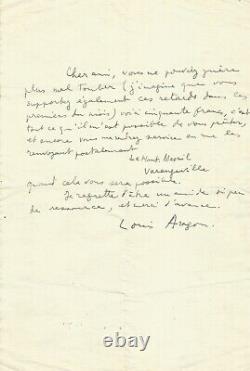 Cher ami, vous ne pouvez guère
plus mal tomber (j'imagine que vous
supportez également ces retards dans les
premiers du mois) voici cinquante francs, c'est
tout ce qu'il m'est possible de vous prêter,
et encore vous me rendrez service en me les
renvoyant postalement
Le Mesnil
Varengeville
quand cela vous sera possible.
Je regrette d'être un ami de si peu
de ressource, et merci d'avance.
Louis Aragon.
ebay